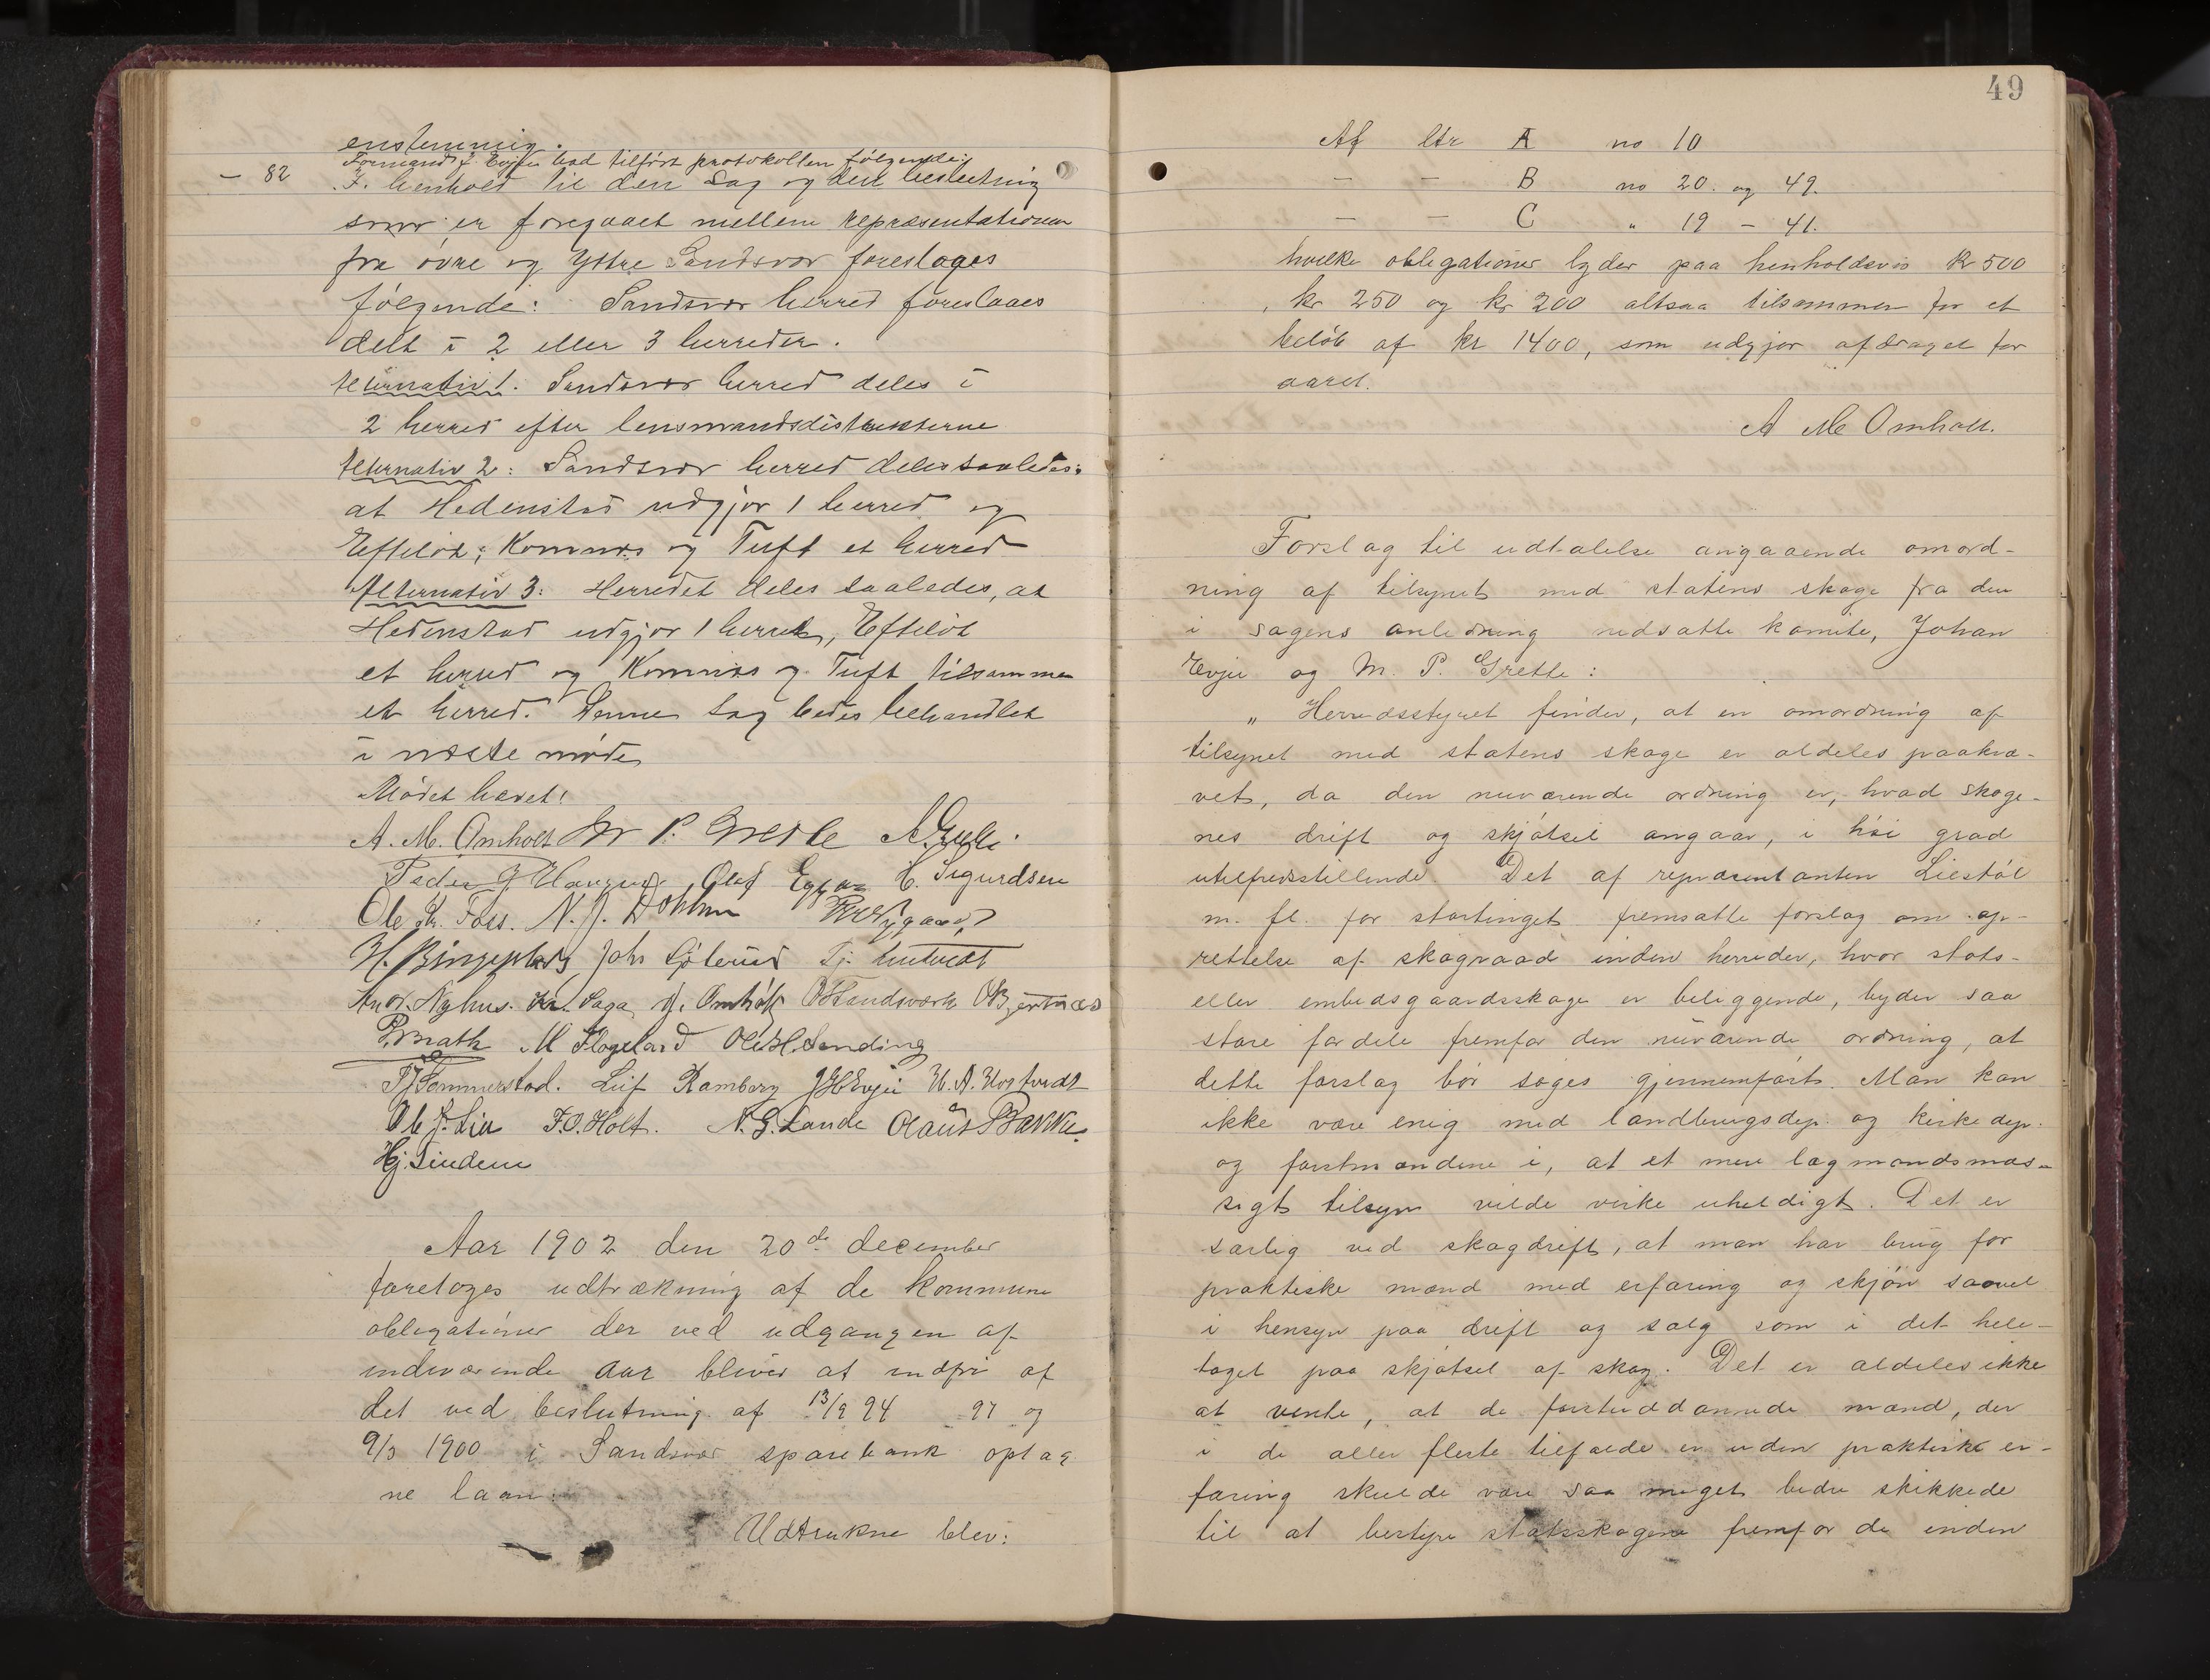 enstemmig.
Formand J. Evju bad tilført protokollen følgende:
– 82 I henhold til den Sag og den beslutning
som er foregaaet mellem repræsentationen
fra øvre og Ytre Sandsvær foreslages
følgende: Sandsvær herred foreslaaes
delt i 2 eller 3 herreder.
Alternativ 1. Sandsvær herred deles i
2 herred efter lensmandsdistrikterne
Alternativ 2: Sandsvær herred deles saaledes:
at Hedenstad udgjør 1 herred og
Efteløt, Komnæs og Tuft et herred
Alternativ 3: Herredet deles saaledes, at
Hedenstad udgjør 1 herred, Efteløt
et herred og Komnæs og Tuft tilsammen
et herred. Denne Sag bedes behandlet
i næste møde
Mødet hævet!
A. M. Omholt M P. Grette
Peder G Olaf H. Sigurdsen
Ole Kr. Foss. N. J.
H. Bingeplads Joh
And. Nyhus. Kr. Saga J. Omholt
P. Bratt M Skogeland Ole H. Sending
Sommerstad. Leif Ramberg J H Evju
Ole J. Lia F. O. Holt. N. G. Lande Olaus Bakke.
Hj. Lindem
Aar 1902 den 20de december
foretoges udtrækning af de kommune
obligationer der ved udgangen af
indeværende aar bliver at indfri af
det ved beslutning af 13/9 94 97 og
9/3 1900 i Sandsvær sparebank optag
ne laan:
Udtrukne blev:
49
Af ltr A no 10
— — B no 20. og 49.
— — C " 19 – 41.
hvilke obligationer lyder paa henholdsvis kr 500
, kr 250 og kr 200 altsaa tilsammen for et
beløb af kr 1400, som udgjør afdraget for
aaret.
A M Omholt.
Forslag til udtalelse angaaende omord-
ning af tilsynet med statens skoge fra den
i sagens anledning nedsatte komite, Johan
Evju og M. P. Grette:
„ Herredsstyret finder, at en omordning af
tilsynet med statens skoge er aldeles paakræ-
vet, da den nuværende ordning er, hvad skoge-
nes drift og skjøtsel angaar, i høi grad
utilfredsstillende. Det af repræsentanten Liestøl
m. fl. for stortinget fremsatte forslag om op-
rettelse af skograad inden herreder, hvor stats-
eller embedsgaardsskoge er beliggende, byder saa
store fordele fremfor den nuværende ordning, at
dette forslag bør søges gjennemført. Man kan
ikke være enig med landbrugsdep. og kirkedep.
og forstmændene i, at et mere lægmandsmæs-
sigt tilsyn vilde virke uheldigt. Det er
særlig ved skogdrift, at man har brug for
praktiske mænd med erfaring og skjøn saavel
i hensyn paa drift og salg som i det hele-
taget paa skjøtsel af skog. Det er aldeles ikke
at vente, at de forstuddannede mænd, der
i de aller fleste tilfælde er uden praktisk er-
faring skulde være saa meget bedre skikkede
til at bestyre statsskogene fremfor de inden